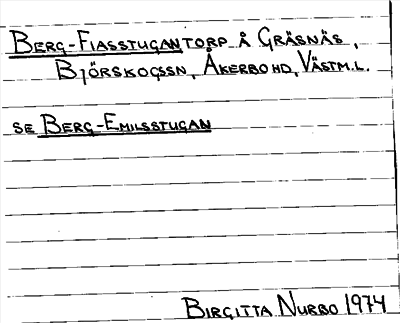 BERG-FIASSTUGAN TORP Å GRÄSNÄS,
BJÖRSKOGSSN, ÅKERBO HD, VÄSTM.L.
SE BERG-EMILSSTUGAN
BIRGITTA NURBO 1974